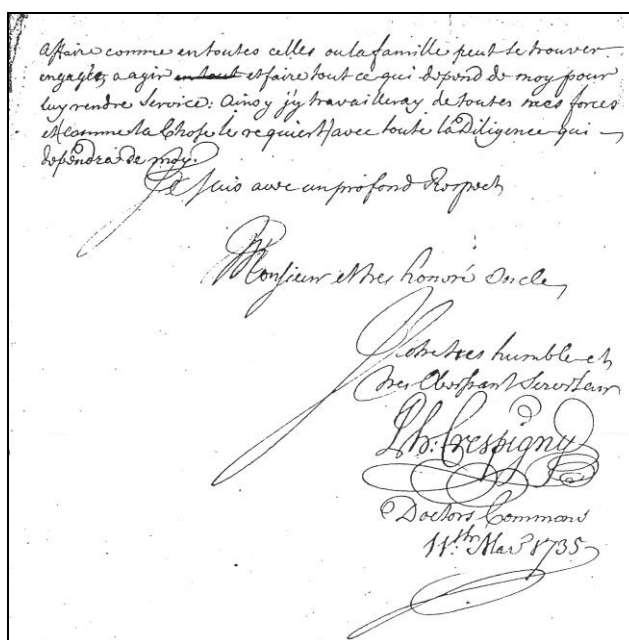 affaire comme en toutes celles ou la famille peut se trouver
engagéz a agir en tout et faire tout ce qui depend de moy pour
luy rendre service: ainsy j'y travailleray de toutes mes forces
et (comme la Chose le requiert) avec toute la Diligence qui
dependra de moy.
Je suis avec un profond Respect
Monsieur et tres honoré Oncle
Votre tres humble et
tres Obeissant Serviteur
Ph: Crespigny
Doctors Commons
11.th Mar. 1735